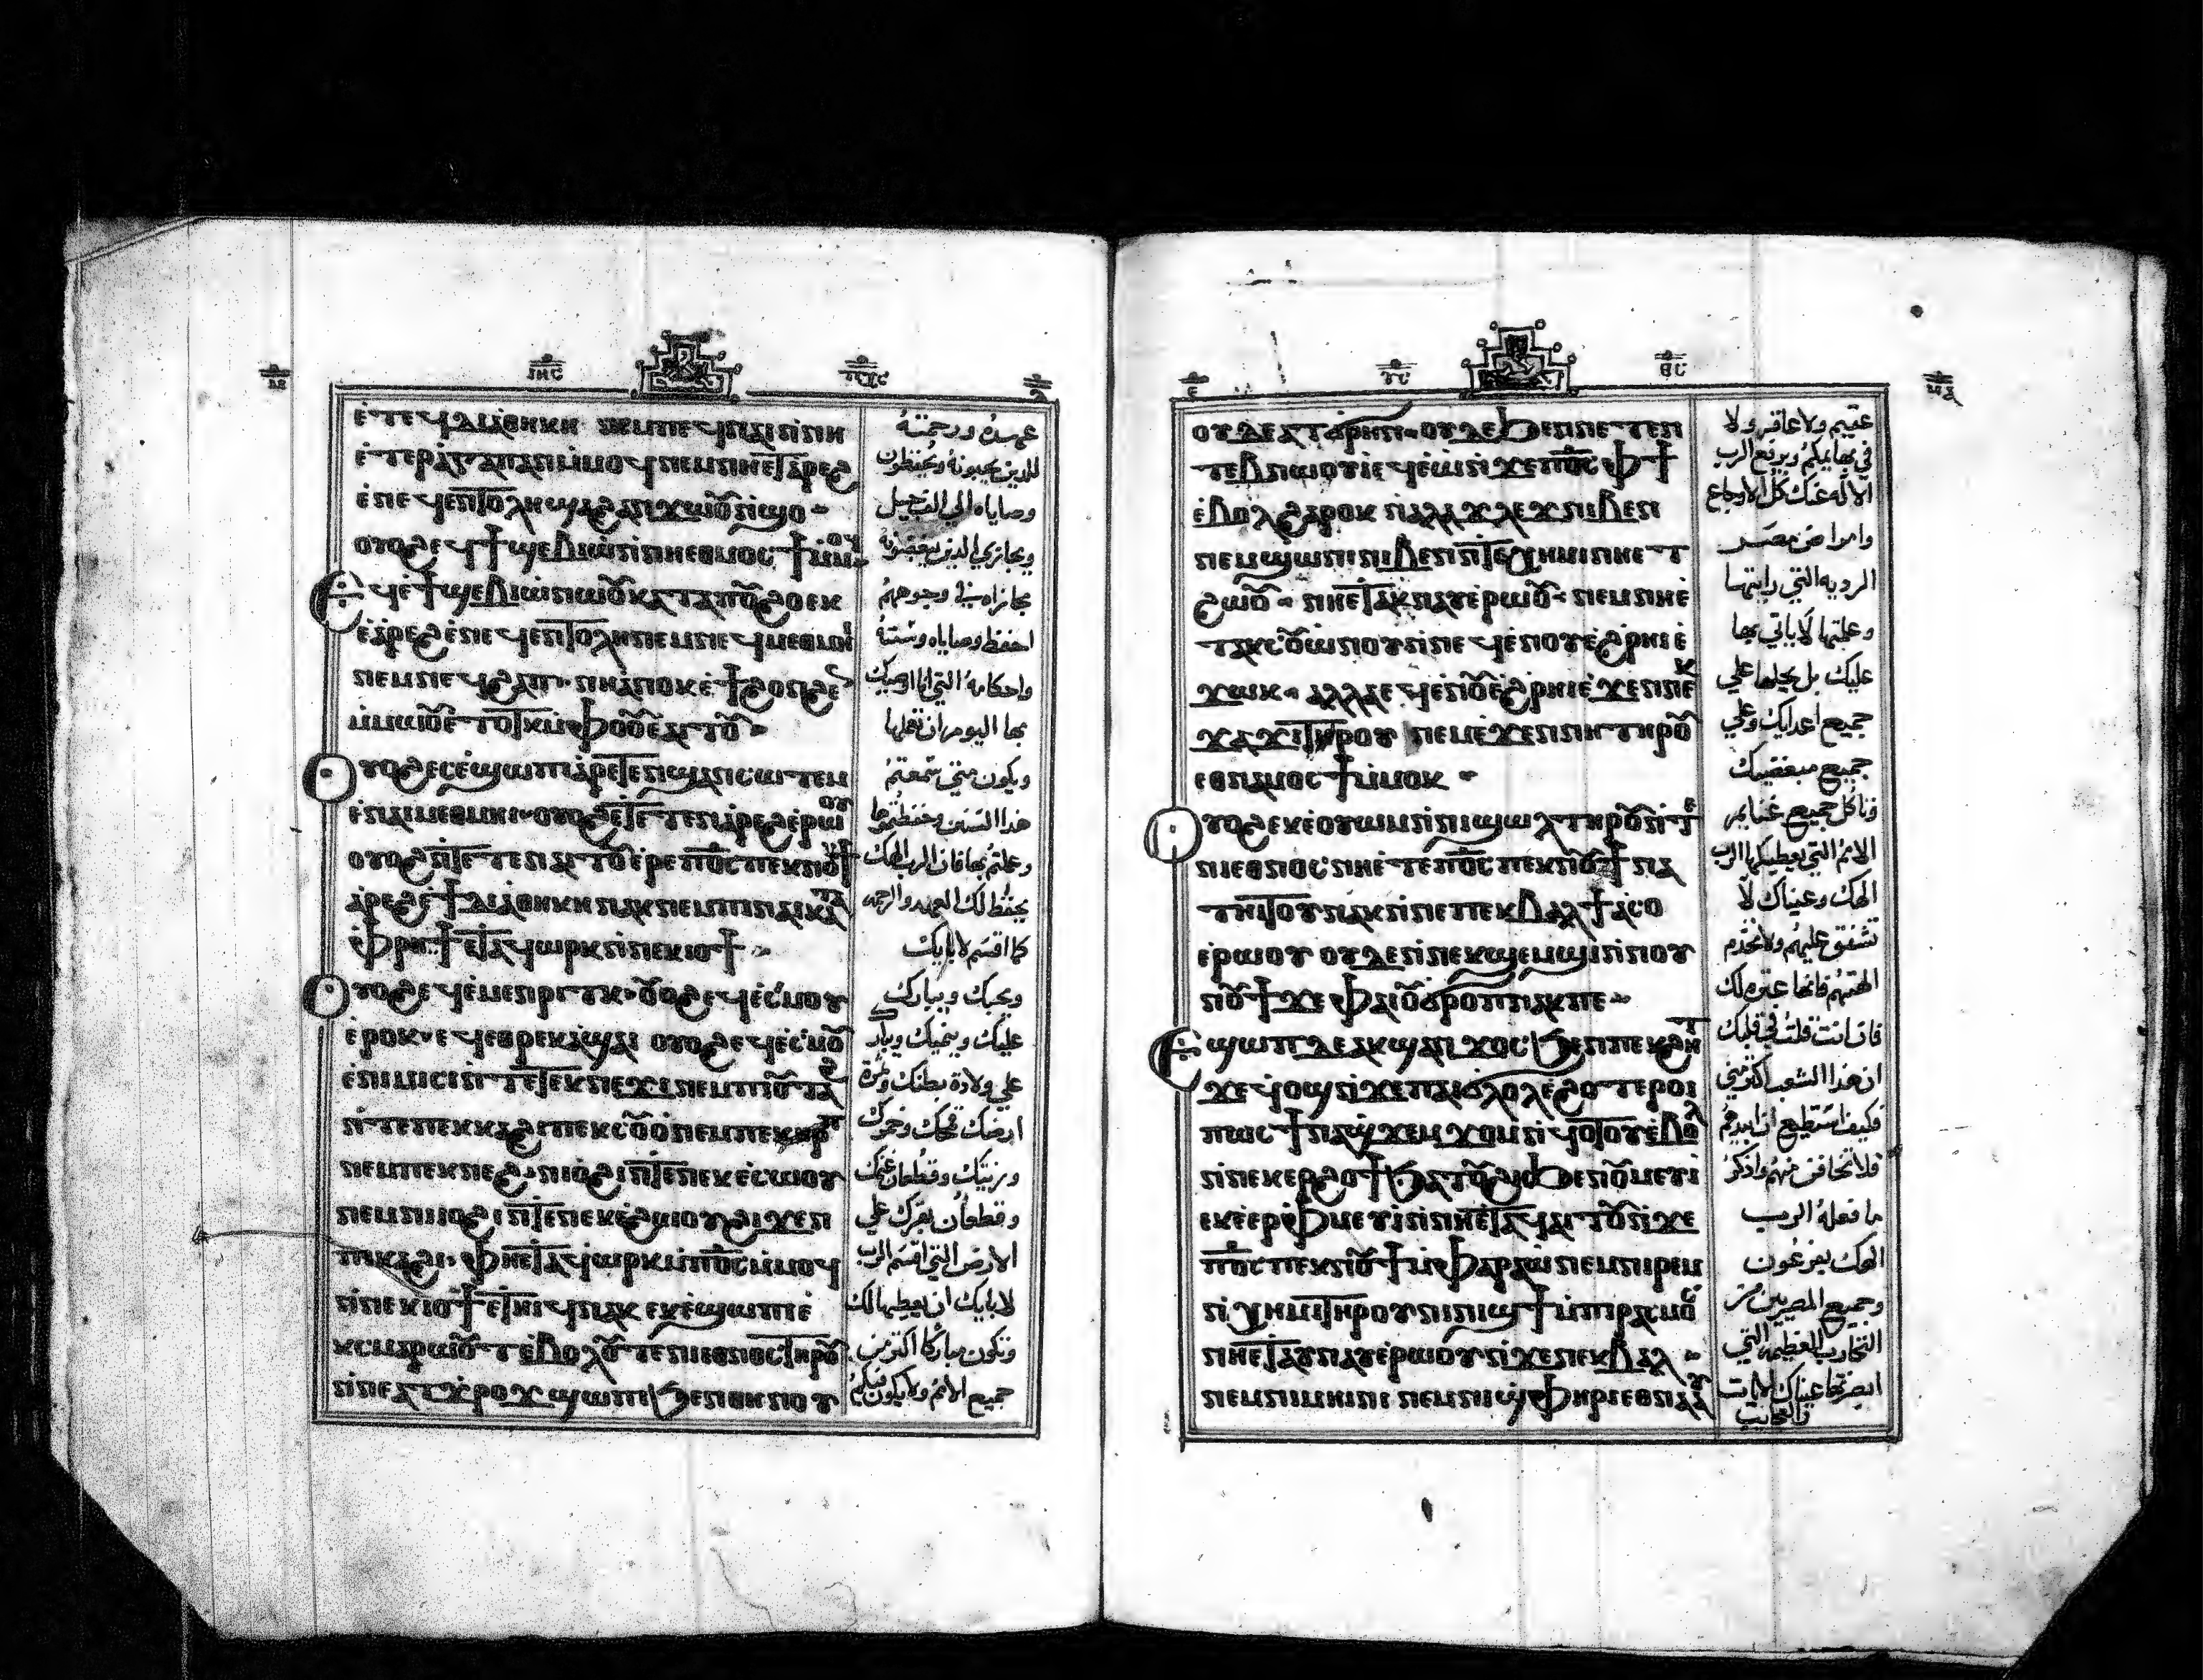 ⲓⲏⲥ ⲡⲭⲥ
ⲉⲧⲉϥⲇⲓⲁⲑⲏⲕⲏ ⲛⲉⲙⲡⲉϥⲛⲁⲓⲛⲛⲏ
ⲉⲧⲉⲣⲁⲅⲁⲡⲁⲛⲙⲙⲟϥⲛⲉⲙⲛⲏⲉⲧⲁⲣⲉϩ
ⲉⲛⲉϥⲉⲛⲧⲟⲗⲏϣⲁϩⲁⲛϫⲱⲟⲩⲛϣⲟ
ⲟⲩⲟϩⲉϥϯϣⲉⲃⲓⲱⲛⲛⲏⲉⲑⲙⲟⲥϯⲙⲙⲟϥ
ⲉϥⲉϯϣⲉⲃⲓⲱⲛⲱⲟⲩⲕⲁⲧⲁⲡⲟⲩϩⲟⲉⲕ
ⲉⲁⲣⲉϩⲉⲛⲉϥⲉⲛⲧⲟⲗⲏⲛⲉⲙⲛⲉϥⲙⲉⲑⲙⲏⲓ
ⲛⲉⲙⲛⲉϥϩⲁⲡ ⲛⲏⲁⲛⲟⲕⲉϯϩⲟⲛϩⲉⲛ
ⲙⲙⲱⲟⲩⲉⲧⲟⲧⲕⲙⲫⲟⲟⲩⲉⲁⲓⲧⲟⲩ
ⲟⲩⲟϩⲉⲥⲉϣⲱⲡⲓⲁⲣⲉⲧⲉⲛϣⲁⲛⲥⲱⲧⲉⲙ
ⲉⲛⲁⲓⲙⲉⲑⲙⲏⲓ ⲟⲩⲟϩⲉⲧⲉⲧⲉⲛⲁⲣⲉϩⲉⲣⲱⲟⲩ
ⲟⲩⲟϩⲛⲧⲉⲧⲉⲛⲁⲓⲧⲟⲩⲉⲣⲉⲡⲟⲥⲡⲉⲕⲛⲟⲩϯ
ⲁⲣⲉϩⲉϯⲇⲓⲁⲑⲏⲕⲏⲛⲁⲕⲛⲉⲙⲡⲓⲛⲁⲓⲕⲁⲧⲁ
ⲫⲣⲏϯⲉⲧⲁϥⲱⲣⲕⲛⲛⲉⲕⲓⲟϯ
ⲟⲩⲟϩⲉϥⲉⲙⲉⲛⲣⲓⲧⲕ ⲟⲩⲟϩⲉϥⲉⲥⲙⲟⲩ
ⲉⲣⲟⲕ ⲉϥⲉⲑⲣⲉⲕⲁϣⲁⲓ ⲟⲩⲟϩⲉϥⲉⲥⲙⲟⲩ
ⲉⲛⲓⲙⲓⲥⲓⲛⲧⲉⲧⲉⲕⲛⲉϫⲓⲛⲉⲙⲡⲓⲟⲩⲧⲁϩ
ⲛⲧⲉⲡⲉⲕⲕⲁϩⲓⲡⲉⲕⲥⲟⲩⲟⲛⲉⲙⲡⲉⲕⲏⲣⲡ
ⲛⲉⲙⲡⲉⲕⲛⲉϩ ⲛⲓⲟϩⲓⲛⲧⲉⲛⲉⲕⲉⲥⲱⲟⲩ
ⲛⲉⲙⲛⲓⲟϩⲓⲛⲧⲉⲛⲉⲕⲉϩⲱⲟⲩϩⲓϫⲉⲛ
ⲡⲓⲕⲁϩⲓ ⲫⲏⲉⲧⲁϥⲱⲣⲕⲙⲡⲟⲥⲙⲙⲟϥ
ⲛⲛⲉⲕⲓⲟϯⲉⲧⲏⲓϥⲛⲁⲕ ⲉⲕⲉϣⲱⲡⲓⲉ
ⲕⲥⲙⲁⲣⲱⲟⲩⲧⲉⲃⲟⲗⲟⲩⲧⲉⲛⲓⲉⲑⲛⲟⲥⲧⲏⲣⲟⲩ
ⲛⲛⲉⲁⲧϫⲣⲟϫϣⲱⲡⲓϧⲉⲛⲑⲏⲛⲟⲩ
عهده ورحمته
للذين يحبونه ويحفظون
وصاياه الي الف جيل
ويجازي الذين يبغضونه
يجازاه في وجوههم
احفظ وصاياه وسننه
واحكامه التي انا اوصيك
بها اليوم ان تعملها
ويكون متي سمعتم
هذا السنن وحفظتموها
وعملتم بها فان الرب الهك
يحفظ لك العهد والرحمه
كما اقسم لابايك
ويحبك ويبارك
عليك وينميك ويبارك
علي ولادة بطنك وثمرة
ارضك قمحك وخمرك
وزيتك وقطعان غنمك
وقطعان بقرك علي
الارض التي اقسم الرب
لابايك ان يعطيها لك
وتكون مباركا اكثر من
جميع الامم ولا يكون فيكم
ⲩⲥ ⲑⲥ
ⲟⲩⲇⲉⲁⲧϭⲣⲏⲛⲓ ⲟⲩⲇⲉϧⲉⲛⲛⲉⲧⲉⲛ
ⲧⲉⲃⲛⲱⲟⲩⲓⲉϥⲉⲱⲗⲓϫⲉⲡⲟⲥⲫϯ
ⲉⲃⲟⲗϩⲁⲣⲟⲕ ⲛⲁⲗⲁϫⲗⲉϫⲛⲓⲃⲉⲛ
ⲛⲉⲙϣⲱⲛⲓⲛⲓⲃⲉⲛⲛⲧⲉⲭⲏⲙⲓⲛⲏⲉⲧ
ϩⲱⲟⲩ ⲛⲏⲉⲧⲁⲕⲛⲁⲩⲉⲣⲱⲟⲩ ⲛⲉⲙⲛⲏⲉ
ⲧⲁⲕⲥⲟⲩⲱⲛⲟⲩⲛⲛⲉϥⲉⲛⲟⲩⲉϩⲣⲏⲓⲉ
ϫⲱⲕ ⲁⲗⲗⲁⲉϥⲉⲛⲟⲩⲉϩⲣⲏⲓⲉϫⲉⲛⲛⲉⲕ
ϫⲁϫⲓⲧⲏⲣⲟⲩ ⲛⲉⲙⲉϫⲉⲛⲛⲏⲧⲏⲣⲟⲩ
ⲉⲑⲛⲁⲙⲟⲥϯⲙⲙⲟⲕ
ⲟⲩⲟϩⲉⲕⲉⲟⲩⲱⲙⲛⲛⲓϣⲱⲗⲧⲏⲣⲟⲩⲛⲧⲉ
ⲛⲓⲉⲑⲛⲟⲥⲛⲏⲉⲧⲉⲡⲟⲥⲡⲉⲕⲛⲟⲩϯⲛⲁ
ⲧⲏⲓⲧⲟⲩⲛⲁⲕⲛⲛⲉⲡⲉⲕⲃⲁⲗϯⲁⲥⲟ
ⲉⲣⲱⲟⲩ ⲟⲩⲇⲉⲛⲛⲉⲕϣⲉⲙϣⲓⲛⲛⲟⲩ
ⲛⲟⲩϯϫⲉⲫⲁⲓⲟⲩϭⲣⲟⲡⲛⲁⲕⲡⲉ
ⲉϣⲱⲡⲇⲉⲁⲕϣⲁⲛϫⲟⲥϧⲉⲛⲡⲉⲕϩⲏⲧ
ϫⲉϥⲟϣⲛϫⲉⲡⲁⲓϭⲗⲟⲗⲉϩⲟⲧⲉⲣⲟⲓ
ⲡⲱⲥϯⲛⲁϣϫⲉⲙϫⲟⲙⲛϥⲟⲧⲟⲩⲉⲃⲟⲗ
ⲛⲛⲉⲕⲉⲣϩⲟϯϧⲁⲧⲟⲩϩⲏϧⲉⲛⲟⲩⲙⲉⲩⲓ
ⲉⲕⲉⲉⲣⲫⲙⲉⲩⲓⲛⲛⲏⲉⲧⲁϥⲁⲓⲧⲟⲩⲛϫⲉ
ⲡⲟⲥⲡⲉⲕⲛⲟⲩϯⲙⲫⲁⲣⲁⲱⲛⲉⲙⲛⲓⲣⲉⲙ
ⲛⲭⲏⲙⲓⲧⲏⲣⲟⲩⲛⲛⲓϣϯⲙⲡⲓⲣⲁⲥⲙⲟⲥ
ⲛⲏⲉⲧⲁⲩⲛⲁⲩⲉⲣⲱⲟⲩⲛϫⲉⲛⲉⲕⲃⲁⲗ
ⲛⲉⲙⲛⲓⲙⲏⲓⲛⲓ ⲛⲉⲙⲛⲓϣⲫⲏⲣⲓⲉⲑⲛⲁⲁⲩ
عقيم ولا عاقر ولا
في بهايمكم ويرفع الرب
الاله عنك كل الاوجاع
وامراض مصر
الرديه التي رايتها
وعلمتها لا ياتي بها
عليك بل يجلبها علي
جميع اعدايك وعلي
جميع مبغضيك
وتاكل جميع غنايم
الامم التي يعطيكها الرب
الهك وعيناك لا
تشفق عليهم ولا تخدم
الهتهم فانها عثره لك
فان انت قلت في قلبك
ان هذا الشعب اكثر مني
فكيف استطيع ان ابيدهم
فلا تخاف منهم واذكر
ما فعله الرب
الهك بفرعون
وجميع المصريين من
التجارب العظيمه التي
ابصرتها عيناك الايات
والعجايب